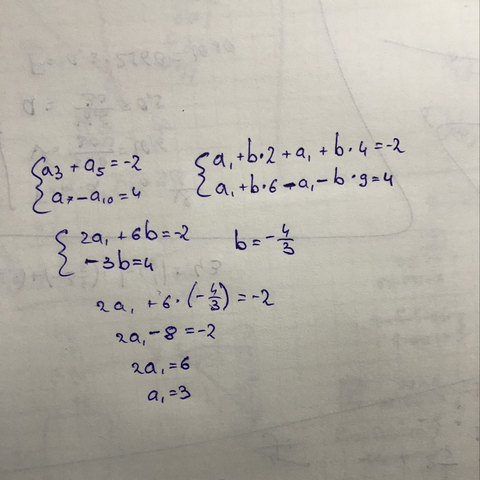 { a₃ + a₅ = -2
a₇ - a₁₀ = 4
{ a₁ + b·2 + a₁ + b·4 = -2
a₁ + b·6 - a₁ - b·9 = 4
{ 2a₁ + 6b = -2
-3b = 4
b = -4/3
2a₁ + 6·(-4/3) = -2
2a₁ - 8 = -2
2a₁ = 6
a₁ = 3